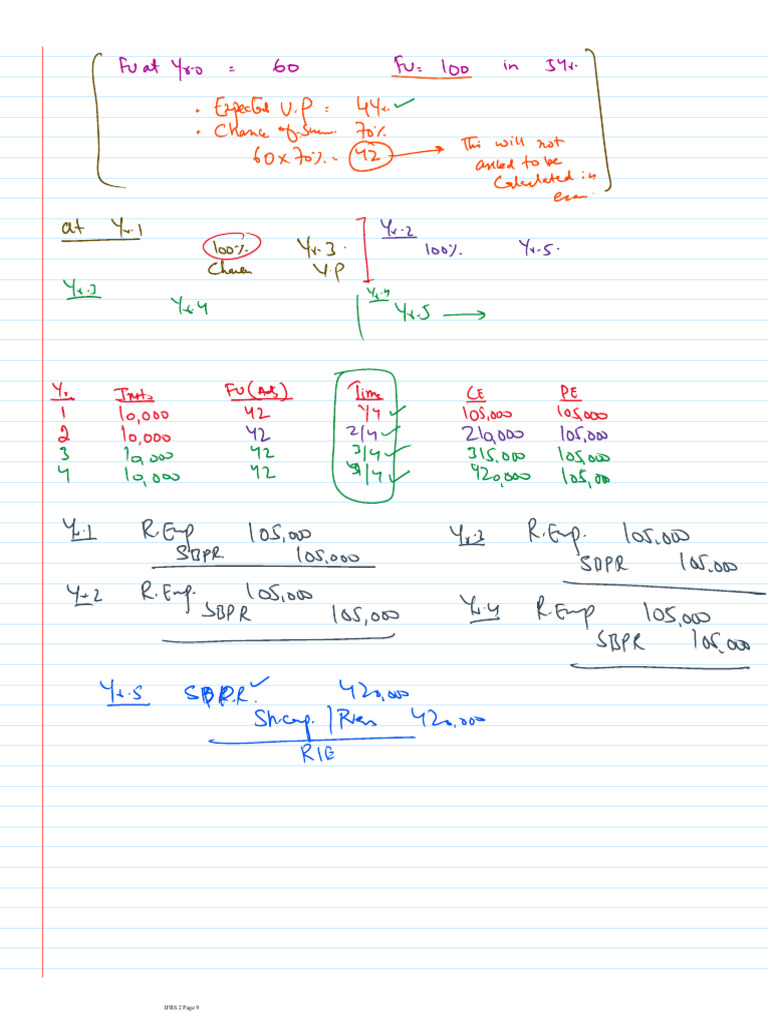 FV at Yr.0 = 60 FV = 100 in 5Yr.
• Expected V.P = 4Yr. ✓
• Chance of 70%
60 x 70% = 42 → This will not
asked to be
Calculated in
exam
at Yr.1 Yr.2
100% Yr.3 100% Yr.5
Chance V.P
Yr.3 Yr.4
Yr.4 Yr.5 →
Yr Insts FV (Adj) Time CE PE
1 10,000 42 1/4 ✓ 105,000 105,000
2 10,000 42 2/4 ✓ 210,000 105,000
3 10,000 42 3/4 ✓ 315,000 105,000
4 10,000 42 4/4 ✓ 420,000 105,000
Yr.1 R.Emp 105,000 R.Emp. 105,000
SBPR 105,000 SBPR 105,000
Yr.2 R.Emp. 105,000 Yr.4 R.Emp 105,000
SBPR 105,000 SBPR 105,000
Yr.5 ✓ 420,000
Sh.cap. / 420,000
R/E
IFRS 2 Page 9